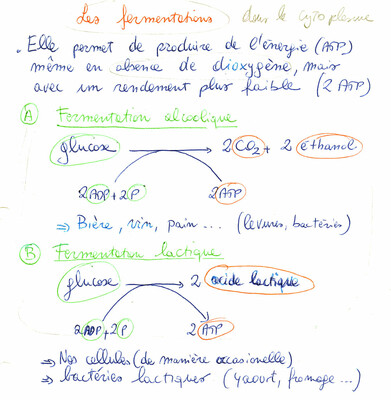 Les fermentations dans le cytoplasme
• Elle permet de produire de l'énergie (ATP)
même en absence de dioxygène, mais
avec un rendement plus faible (2 ATP)
A Fermentation alcoolique
glucose → 2 CO2 + 2 éthanol
2 ADP + 2 P 2 ATP
⇒ Bière, vin, pain ... (levures, bactéries)
B Fermentation lactique
glucose → 2 acide lactique
2 ADP + 2 P 2 ATP
⇒ Nos cellules (de manière occasionelle)
⇒ bactéries lactiques (yaourt, fromage ...)